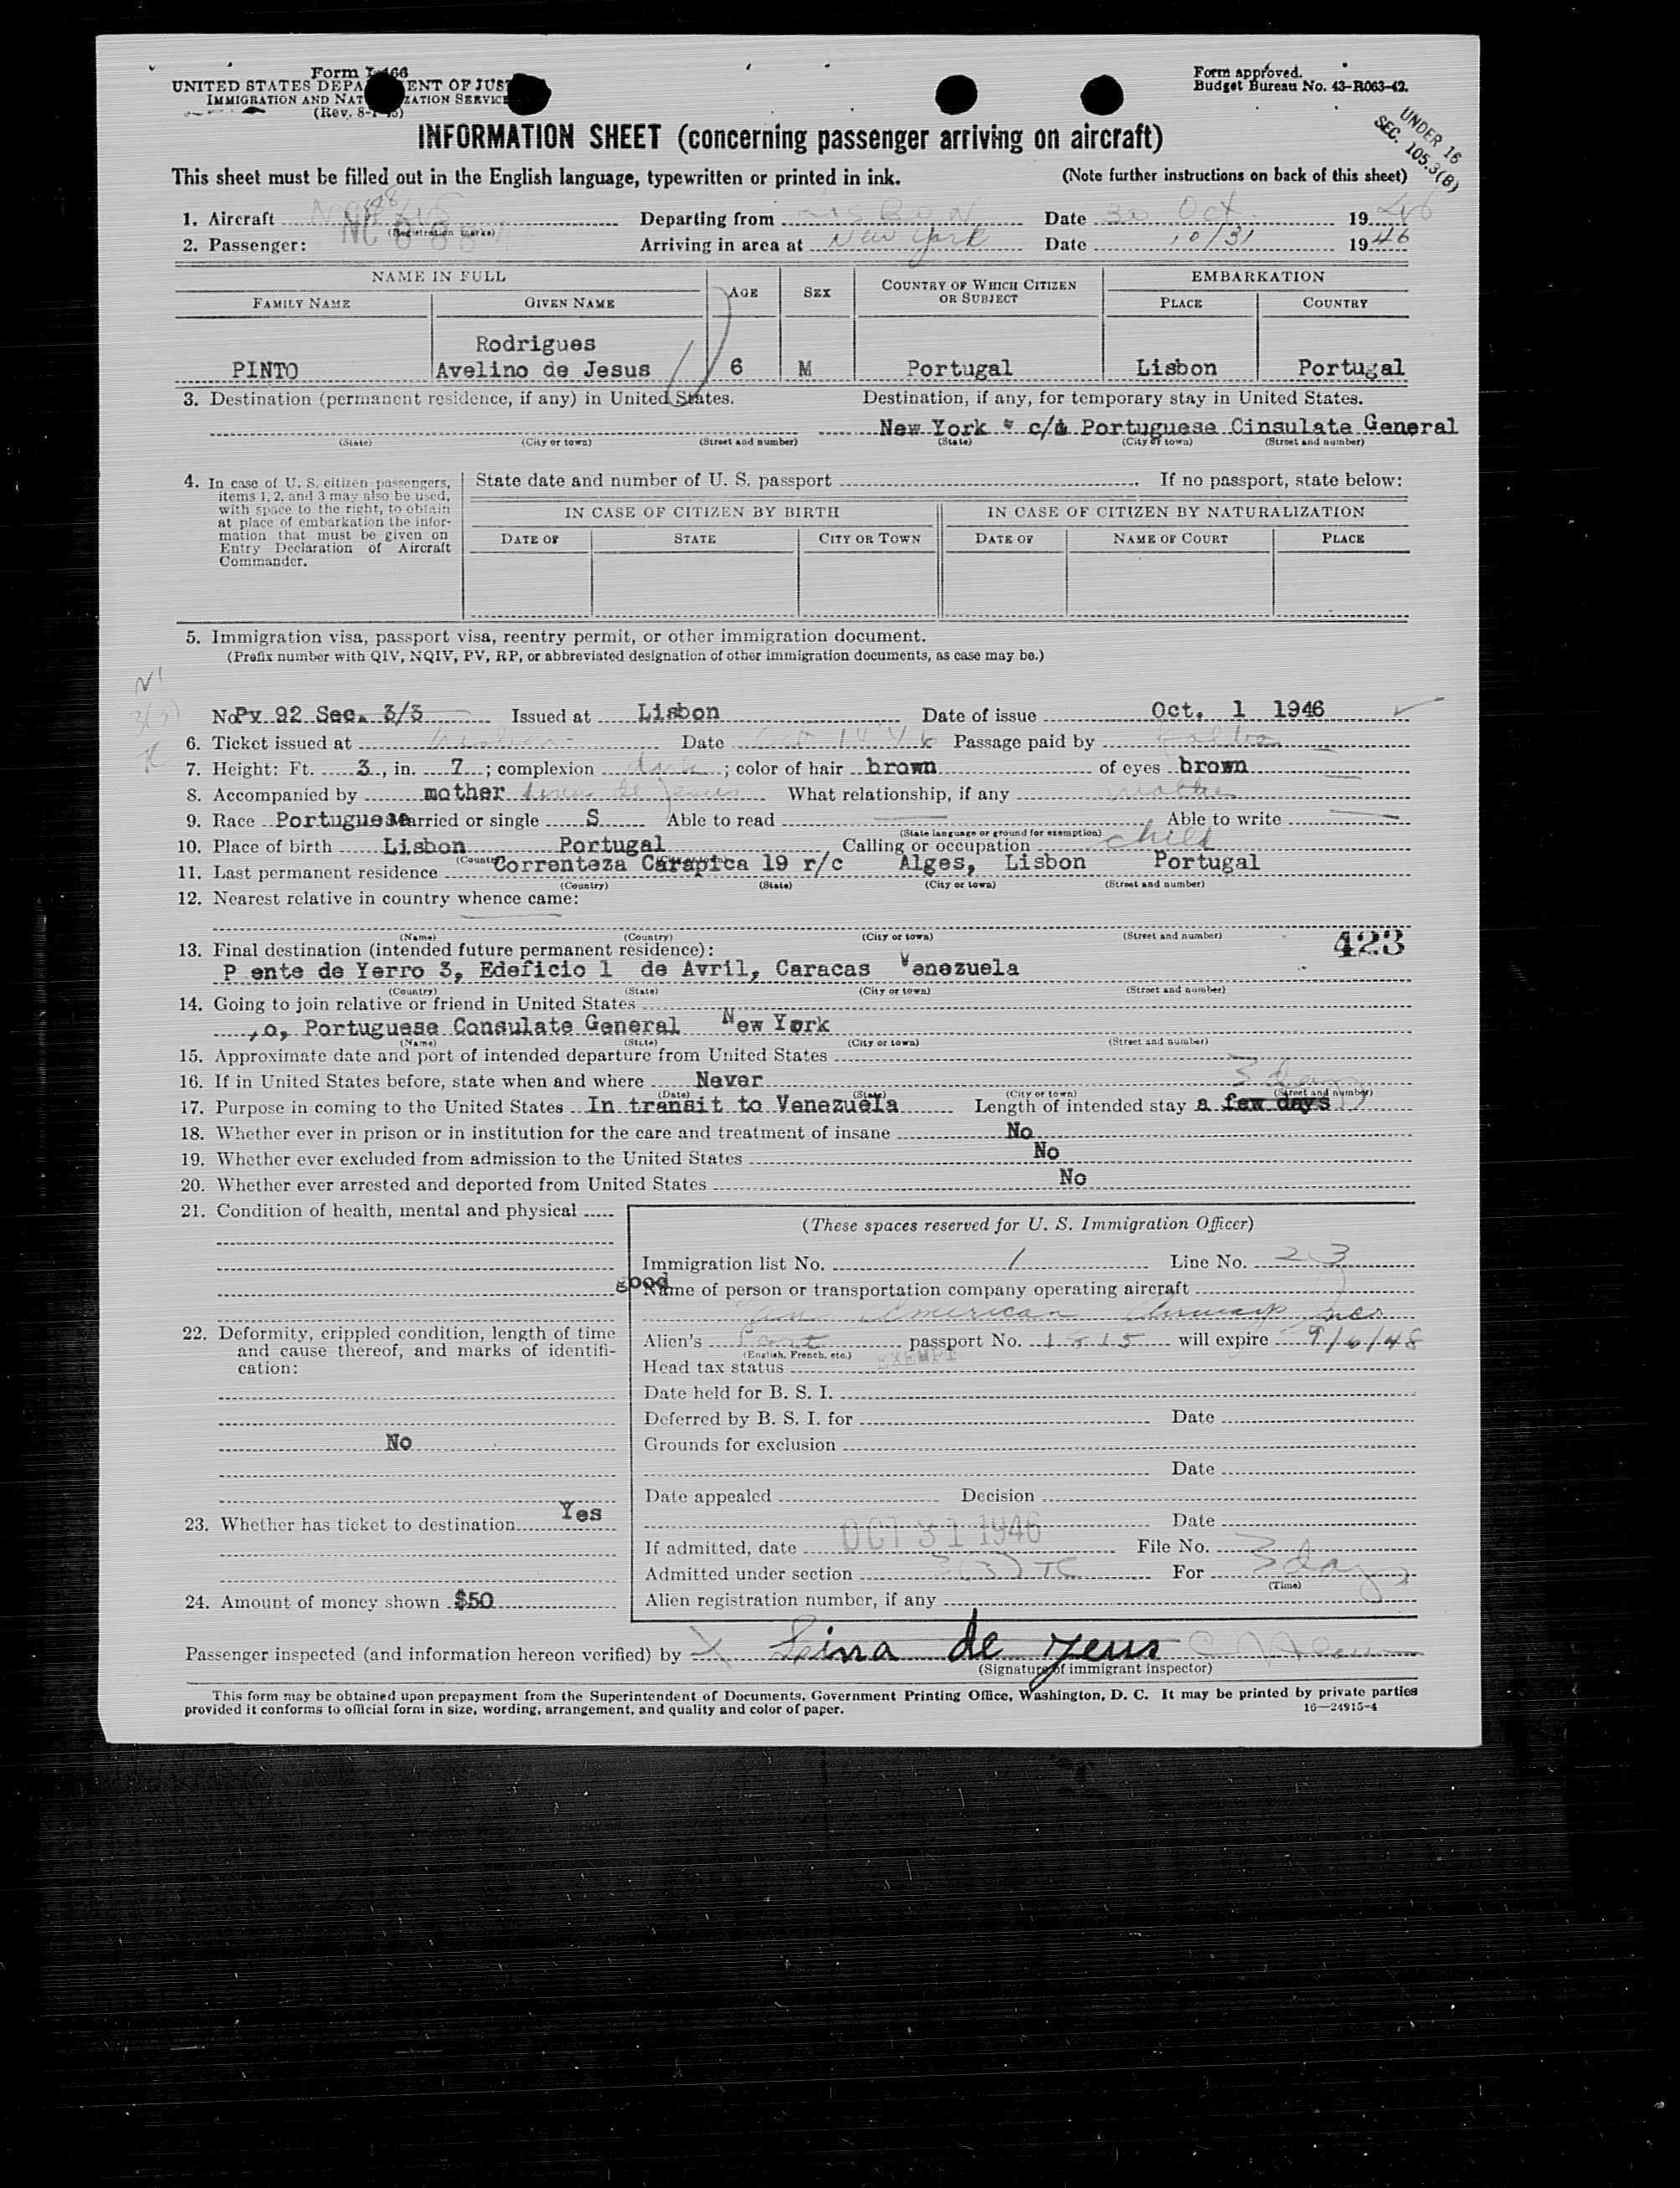 Form I-466
UNITED STATES DEPA ENT OF JUS
IMMIGRATION AND NAT ZATION SERVICE
(Rev. 8-1-45)
Form approved.
Budget Bureau No. 43-R063-42.
UNDER 16
SEC. 105.3(B)
INFORMATION SHEET (concerning passenger arriving on aircraft)
This sheet must be filled out in the English language, typewritten or printed in ink. (Note further instructions on back of this sheet)
1. Aircraft (Registration marks) Departing from LISBON Date 30 Oct. 1946
2. Passenger: Arriving in area at New York Date 10/31 1946
NAME IN FULL AGE SEX COUNTRY OF WHICH CITIZEN OR SUBJECT EMBARKATION
FAMILY NAME GIVEN NAME PLACE COUNTRY
Rodrigues
PINTO Avelino de Jesus 6 M Portugal Lisbon Portugal
3. Destination (permanent residence, if any) in United States. Destination, if any, for temporary stay in United States.
New York c/o Portuguese Cinsulate General
(State) (City or town) (Street and number) (State) (City or town) (Street and number)
4. In case of U. S. citizen passengers, items 1, 2, and 3 may also be used, with space to the right, to obtain at place of embarkation the information that must be given on Entry Declaration of Aircraft Commander.
State date and number of U. S. passport . If no passport, state below:
IN CASE OF CITIZEN BY BIRTH IN CASE OF CITIZEN BY NATURALIZATION
DATE OF STATE CITY OR TOWN DATE OF NAME OF COURT PLACE
5. Immigration visa, passport visa, reentry permit, or other immigration document.
(Prefix number with QIV, NQIV, PV, RP, or abbreviated designation of other immigration documents, as case may be.)
No Pv 92 Sec. 3/3 Issued at Lisbon Date of issue Oct. 1 1946
6. Ticket issued at Lisbon Date Oct Passage paid by father
7. Height: Ft. 3, in. 7; complexion dark; color of hair brown of eyes brown
8. Accompanied by mother de Jesus What relationship, if any mother
9. Race Portuguese Married or single S Able to read Able to write
(State language or ground for exemption)
10. Place of birth Lisbon Portugal Calling or occupation child
11. Last permanent residence Correnteza Carapica 19 r/c Alges, Lisbon Portugal
(Country) (State) (City or town) (Street and number)
12. Nearest relative in country whence came:
(Name) (Country) (City or town) (Street and number)
423
13. Final destination (intended future permanent residence):
P ente de Yerro 3, Edeficio 1 de Avril, Caracas Venezuela
(Country) (State) (City or town) (Street and number)
14. Going to join relative or friend in United States
,o, Portuguese Consulate General New York
(Name) (State) (City or town) (Street and number)
15. Approximate date and port of intended departure from United States
16. If in United States before, state when and where Never
(Date) (State) (City or town) (Street and number)
3 days
17. Purpose in coming to the United States In transit to Venezuela Length of intended stay a few days
18. Whether ever in prison or in institution for the care and treatment of insane No
19. Whether ever excluded from admission to the United States No
20. Whether ever arrested and deported from United States No
21. Condition of health, mental and physical
good
22. Deformity, crippled condition, length of time and cause thereof, and marks of identification:
No
23. Whether has ticket to destination Yes
24. Amount of money shown $50
(These spaces reserved for U. S. Immigration Officer)
Immigration list No. 1 Line No. 23
Name of person or transportation company operating aircraft
Pan American Airways Inc
Alien's Port passport No. 1815 will expire 9/6/48
(English, French, etc.)
Head tax status EXEMPT
Date held for B. S. I.
Deferred by B. S. I. for Date
Grounds for exclusion
Date
Date appealed Decision
Date
If admitted, date OCT 31 1946 File No.
Admitted under section 3(3) TC For 3 days
(Time)
Alien registration number, if any
Passenger inspected (and information hereon verified) by X Lina de Jesus
(Signature of immigrant inspector)
This form may be obtained upon prepayment from the Superintendent of Documents, Government Printing Office, Washington, D. C. It may be printed by private parties
provided it conforms to official form in size, wording, arrangement, and quality and color of paper. 16—24915-4